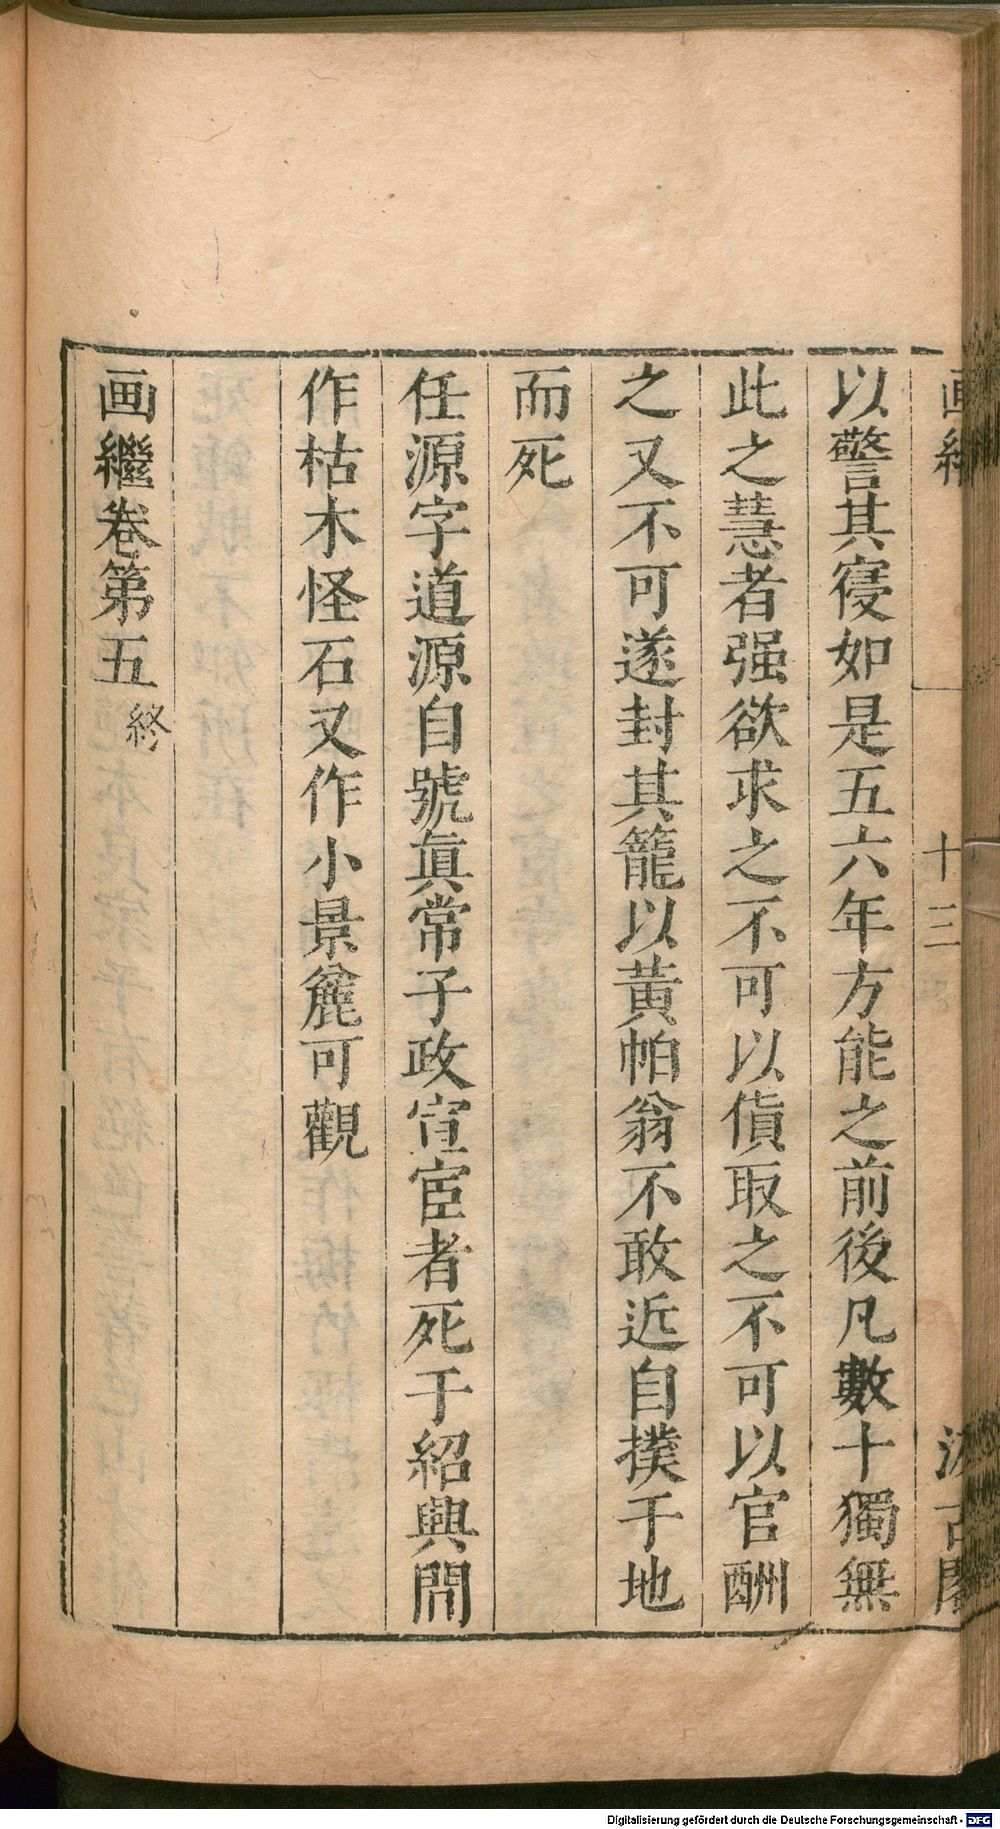 以警其寑如是五六年方能之前後凡數十獨無
此之慧者强欲求之不可以貨取之不可以官酬
之又不可遂封其籠以黃帕翁不敢近自撲于地
而死
任源字道源自號眞常子政宣宦者死于紹興間
作枯木怪石又作小景麄可觀
画繼卷第五終
十三
Digitalisierung gefördert durch die Deutsche Forschungsgemeinschaft - DFG